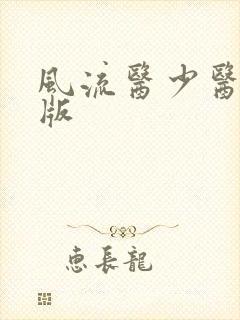 風流醫少醫
版
惠長龍